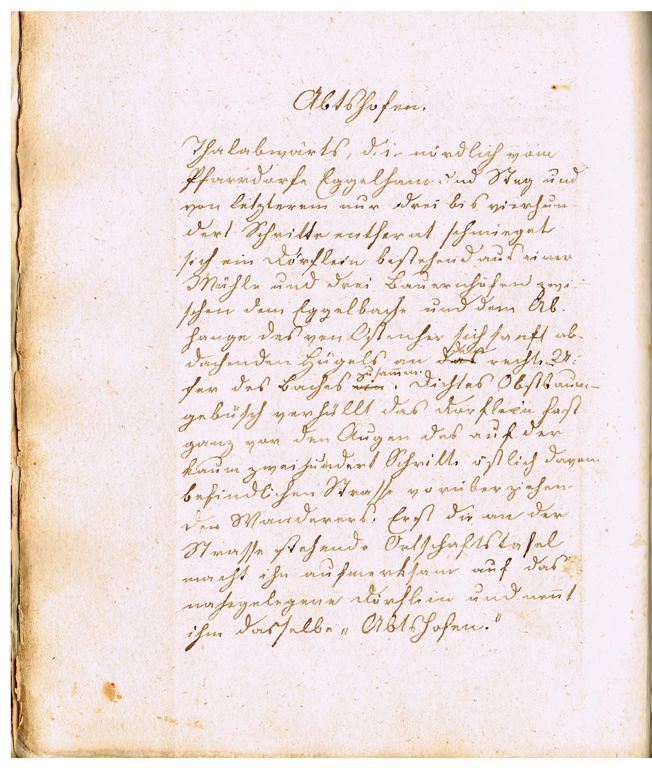 Abtshofen.
Thalabwärts, d. i. nördlich vom
Pfarrdorfe Eggelham und Steg und
von letzterem nur drei bis vierhun-
dert Schritte entfernt schmieget
sich ein Dörflein bestehend aus einer
Mühle und drei Bauernhöfen zwi-
schen dem Eggelbache und dem Ab-
hange des von Osten her sich sanft ab-
dachenden Hügels an das rechte U-
fer des Baches zusammen. Dichtes Obstbaum-
gebüsch verhüllt das Dörflein fast
ganz vor den Augen des auf der
kaum zweihundert Schritte östlich davon
befindlichen Strasse vorüberziehen-
den Wanderers. Erst die an der
Strasse stehende Ortschaftstafel
macht ihn aufmerksam auf das
nahegelegene Dörflein und nennt
ihm dasselbe „Abtshofen."